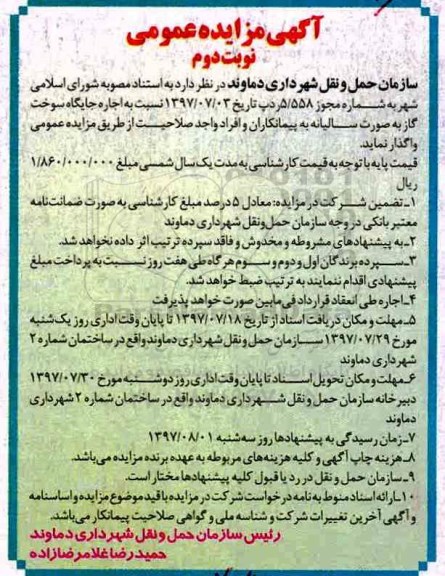 آگهی مزایده عمومی
نوبت دوم
سازمان حمل و نقل شهرداری دماوند در نظر دارد به استناد مصوبه شورای اسلامی
شهر به شماره مجوز ۵/۵۵۸ دپ تاریخ ۱۳۹۷/۰۷/۰۳ نسبت به اجاره جایگاه سوخت
گاز به صورت سالیانه به پیمانکاران و افراد واجد صلاحیت از طریق مزایده عمومی
واگذار نماید.
قیمت پایه با توجه به قیمت کارشناسی به مدت یک سال شمسی مبلغ ۱/۸۶۰/۰۰۰/۰۰۰
ریال
۱ـ تضمین شرکت در مزایده: معادل ۵ درصد مبلغ کارشناسی به صورت ضمانت نامه
معتبر بانکی در وجه سازمان حمل ونقل شهرداری دماوند
۲ـ به پیشنهادهای مشروطه و مخدوش و فاقد سپرده ترتیب اثر داده نخواهد شد.
۳ـ سپرده برندگان اول و دوم و سوم هرگاه طی هفت روز نسبت به پرداخت مبلغ
پیشنهادی اقدام ننمایند به ترتیب ضبط خواهد شد.
۴ـ اجاره طی انعقاد قرارداد فی مابین صورت خواهد پذیرفت
۵ـ مهلت و مکان دریافت اسناد از تاریخ ۱۳۹۷/۰۷/۱۸ تا پایان وقت اداری روز یک شنبه
مورخ ۱۳۹۷/۰۷/۲۹ سازمان حمل و نقل شهرداری دماوند واقع در ساختمان شماره ۲
شهرداری دماوند
۶ـ مهلت و مکان تحویل اسناد تا پایان وقت اداری روز دوشنبه مورخ ۱۳۹۷/۰۷/۳۰
دبیرخانه سازمان حمل و نقل شهرداری دماوند واقع در ساختمان شماره ۲ شهرداری
دماوند
۷ـ زمان رسیدگی به پیشنهادها روز سه شنبه ۱۳۹۷/۰۸/۰۱
۸ـ هزینه چاپ آگهی و کلیه هزینه های مربوطه به عهده برنده مزایده می باشد.
۹ـ سازمان حمل و نقل در رد یا قبول کلیه پیشنهادها مختار است.
۱۰ـ ارائه اسناد منوط به نامه درخواست شرکت در مزایده با قید موضوع مزایده و اساسنامه
و آگهی آخرین تغییرات شرکت و شناسه ملی و گواهی صلاحیت پیمانکار می باشد.
رئیس سازمان حمل و نقل شهرداری دماوند
حمیدرضا غلامرضازاده